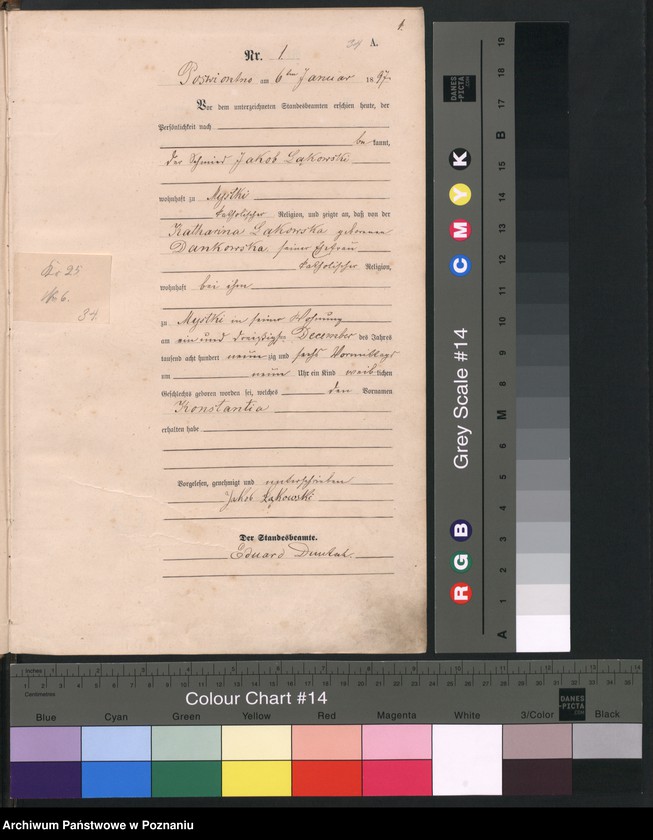 1.
39 A.
Nr. 1.
Poswiontno am 6ten Januar 1897.
Vor dem unterzeichneten Standesbeamten erschien heute, der
Persönlichkeit nach
be kannt,
der Schmied Jakob Ląkowski
wohnhaft zu Mystki
katholischer Religion, und zeigte an, daß von der
Katharina Ląkowska geborenen
Dankowska seiner Ehefrau
katholischer Religion,
wohnhaft bei ihm
zu Mystki in seiner Wohnung
am ein und dreißigsten December des Jahres
tausend acht hundert neunzig und sechs Vormittags
um neun Uhr ein Kind weiblichen
Geschlechts geboren worden sei, welches den Vornamen
Konstantia
erhalten habe
Vorgelesen, genehmigt und unterschrieben
Jakob Łąkowski
Der Standesbeamte.
Eduard
25
No 6.
34
DANES
-PICTA
.COM
Grey Scale #14
R G B C M Y K
A 1 2 3 4 5 6 M 8 9 10 11 12 13 14 15 B 17 18 19
Inches 1 2 3 4 5 6 7 8 9 10 11 12 13 14
Centimetres 1 2 3 4 5 6 7 8 9 10 11 12 13 14 15 16 17 18 19 20 21 22 23 24 25 26 27 28 29 30 31 32 33 34 35
Colour Chart #14
DANES
-PICTA
.COM
Blue Cyan Green Yellow Red Magenta White 3/Color Black
Archiwum Państwowe w Poznaniu